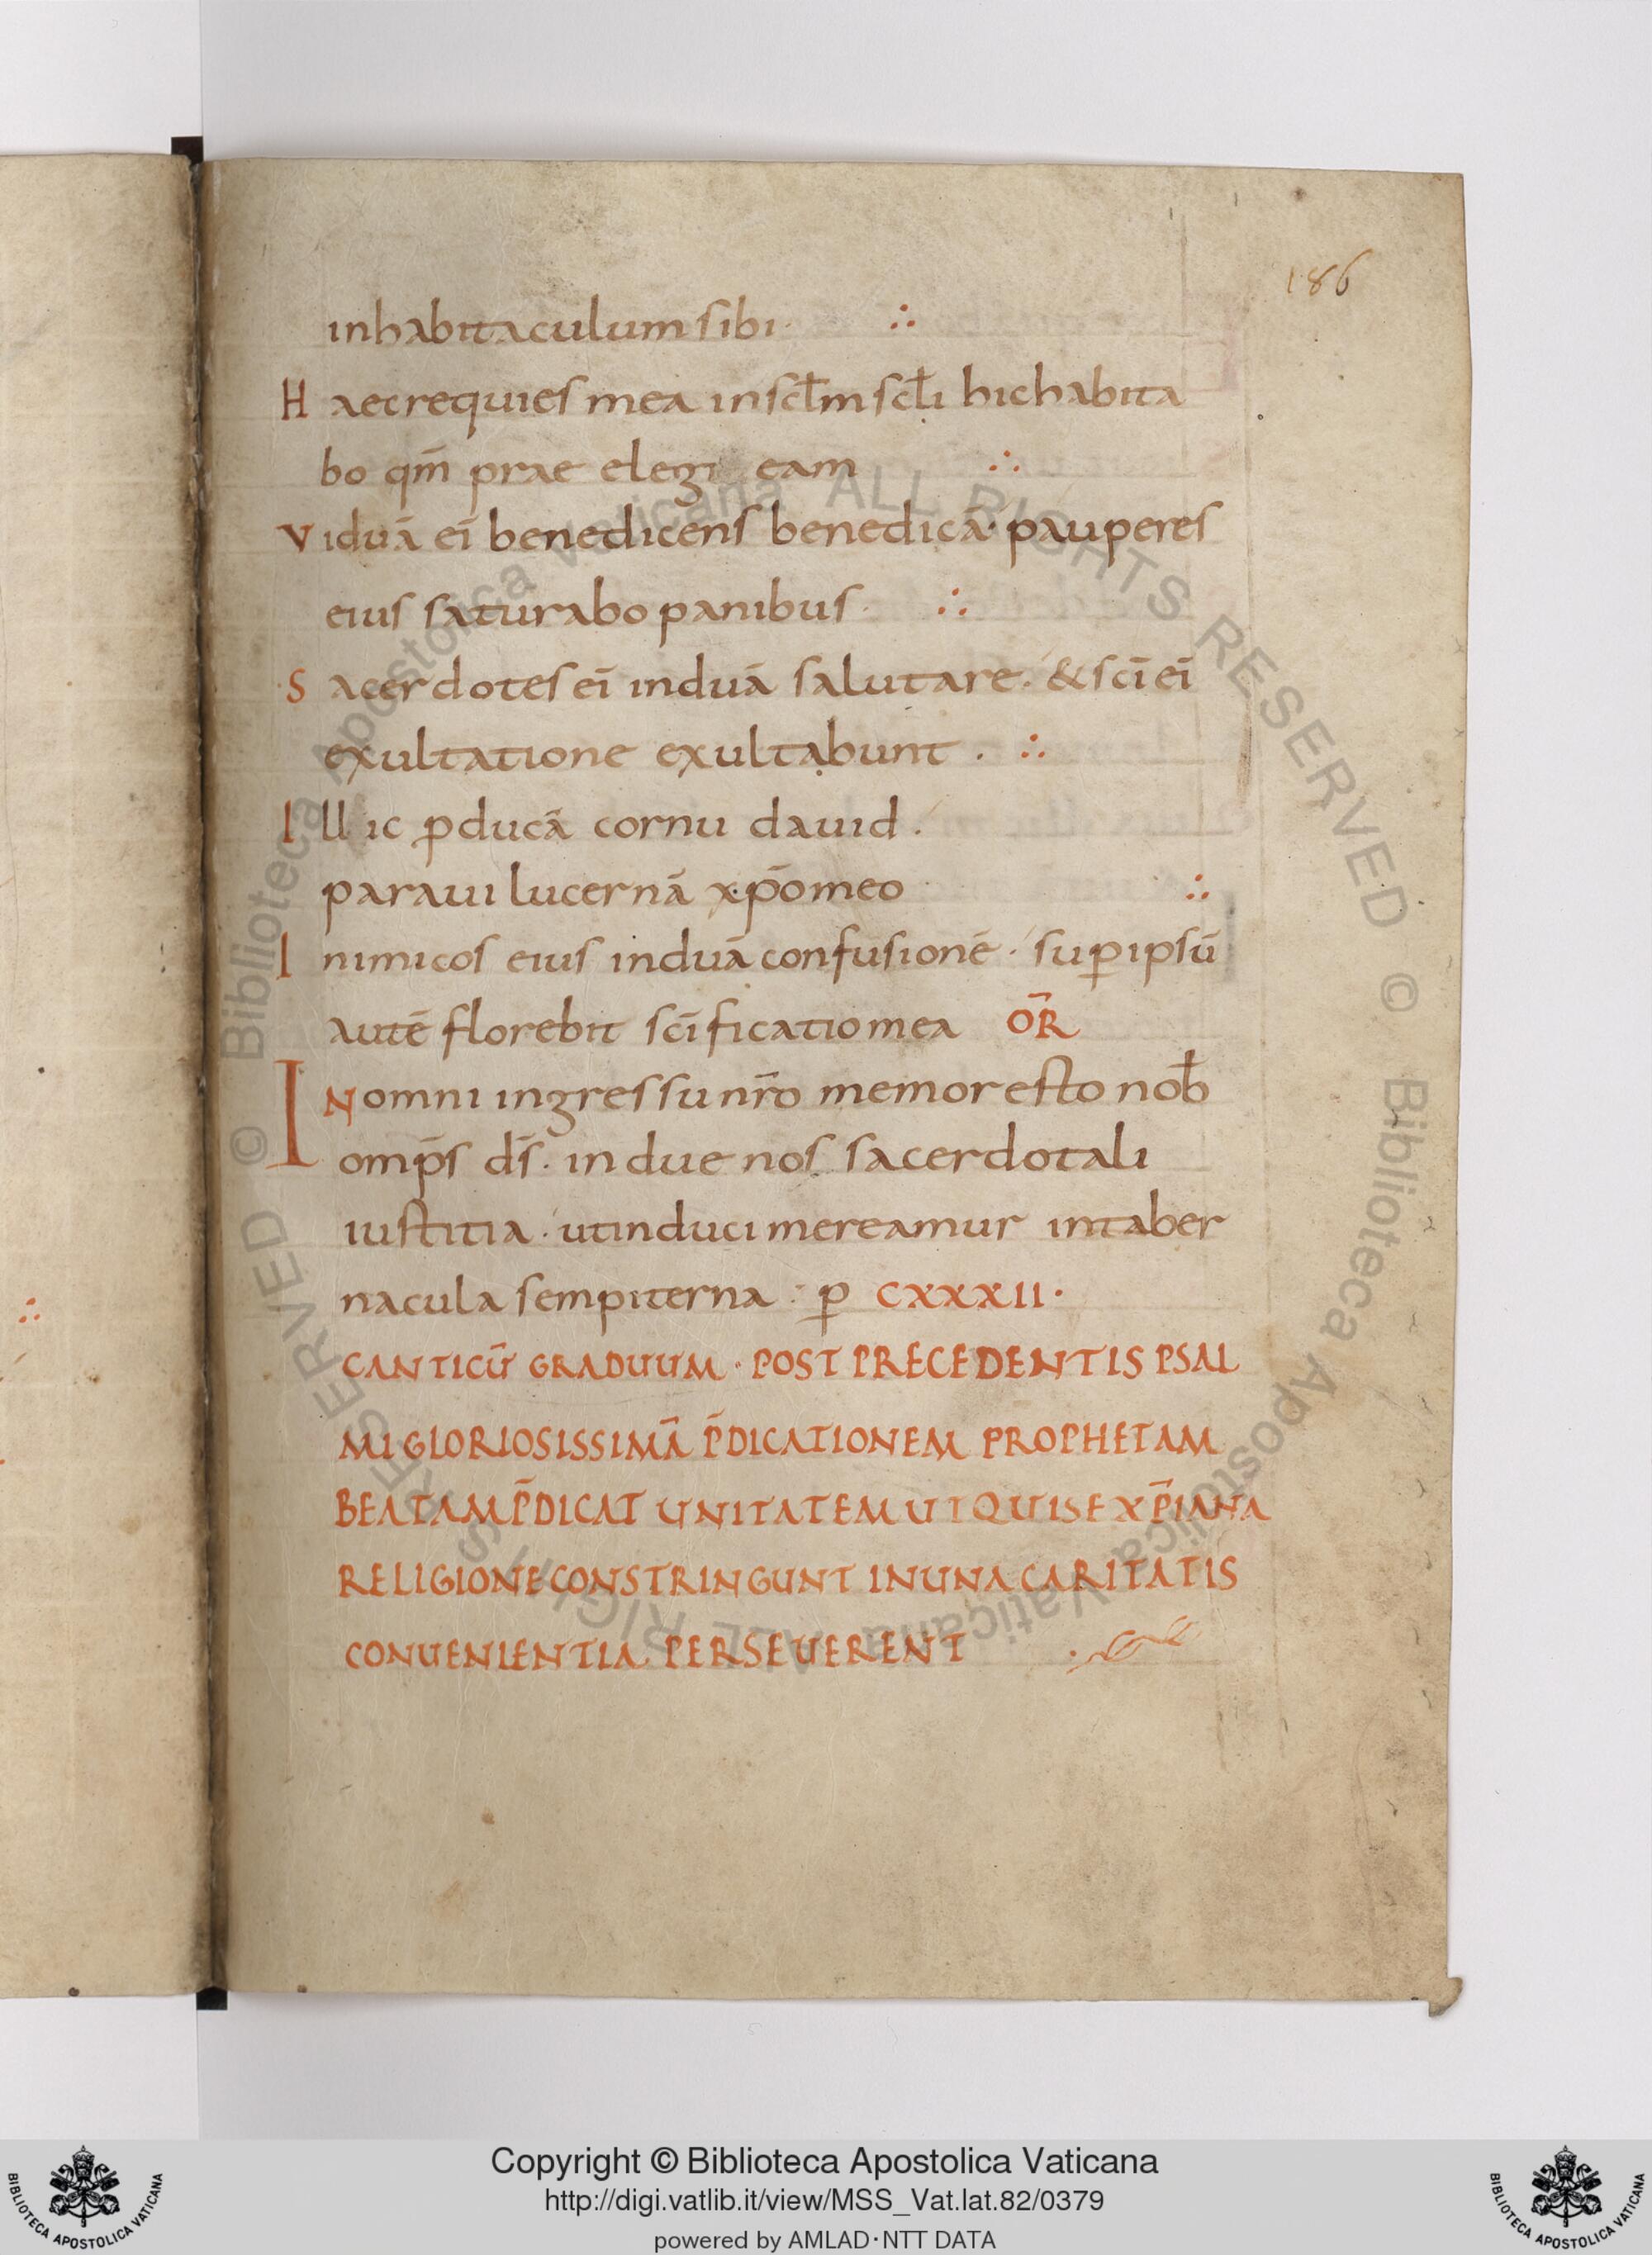 186
inhabitaculum sibi· ∴
H aec requies mea in scl̄m scl̄i hic habita
bo qm̄ prae elegi eam ∴
V iduā ei̅ benedicens benedicā· pauperes
eius saturabo panibus· ∴
S acerdotes ei̅ induā salutare· & sci̅ ei̅
exultatione exultabunt · ∴
I ll ic ꝓducā cornu dauid ·
paraui lucernā xp̄o meo ∴
I nimicos eius induā confusionē · suꝑ ipsū
autē florebit sci̅ficatio mea OR̄
IN omni ingressu nr̄o memor esto nob̄
omp̄s ds̄· indue nos sacerdotali
iustitia · ut induci mereamur in taber
nacula sempiterna : p CXXXII·
CANTICŪ GRADUUM · POST PRECEDENTIS PSAL
MI GLORIOSISSIMĀ P̄DICATIONEM PROPHETAM
BEATAM P̄DICAT UNITATEM UT QUI SE XP̄IANA
RELIGIONE CONSTRINGUNT IN UNA CARITATIS
CONUENIENTIA PERSEUERENT
© Biblioteca Apostolica Vaticana ALL RIGHTS RESERVED © Biblioteca Apostolica Vaticana ALL RIGHTS RESERVED
Copyright © Biblioteca Apostolica Vaticana
http://digi.vatlib.it/view/MSS_Vat.lat.82/0379
powered by AMLAD·NTT DATA
BIBLIOTECA APOSTOLICA VATICANA
BIBLIOTECA APOSTOLICA VATICANA